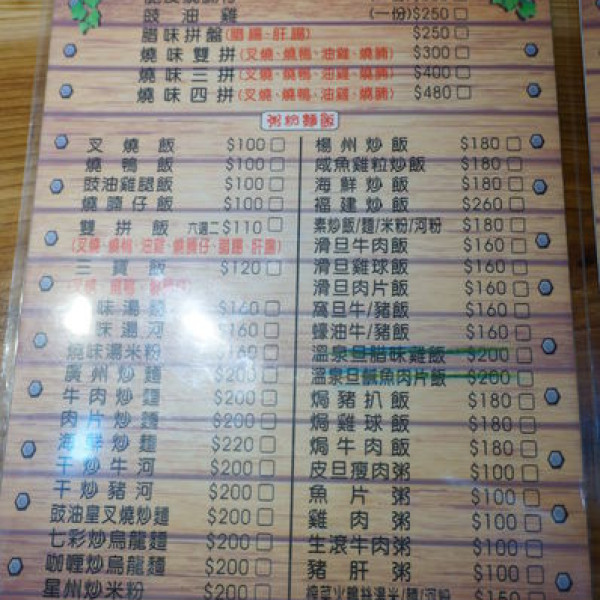 豉油雞 (一份)$250
腊味拼盤(腊腸、肝腸) $250
燒味雙拼(叉燒、燒鴨、油雞、燒腩) $300
燒味三拼(叉燒、燒鴨、油雞、燒腩) $400
燒味四拼(叉燒、燒鴨、油雞、燒腩) $480
粥粉麵飯
叉燒飯 $100
燒鴨飯 $100
豉油雞腿飯 $100
燒腩仔飯 $100
雙拼飯 六選二 $110
(叉燒、燒鴨、油雞、燒腩仔、腊腸、肝腸)
三寶飯 $120
味湯 $160
味湯河 $160
燒味湯米粉 $160
廣州炒麵 $200
牛肉炒麵 $200
肉片炒麵 $200
海鮮炒麵 $220
干炒牛河 $200
干炒豬河 $200
豉油皇叉燒炒麵 $200
七彩炒烏龍麵 $200
咖喱炒烏龍麵 $200
星州炒米粉 $200
楊州炒飯 $180
咸魚雞粒炒飯 $180
海鮮炒飯 $180
福建炒飯 $260
素炒飯/麵/米粉/河粉 $180
滑旦牛肉飯 $160
滑旦雞球飯 $160
滑旦肉片飯 $160
窩旦牛/豬飯 $160
蠔油牛/豬飯 $160
溫泉旦腊味雞飯 $200
溫泉旦鹹魚肉片飯 $200
焗豬扒飯 $180
焗雞球飯 $180
焗牛肉飯 $180
皮旦瘦肉粥 $100
魚片粥 $100
雞肉粥 $100
生滾牛肉粥 $100
豬肝粥 $100
火鴨絲湯米/麵/河粉 $150